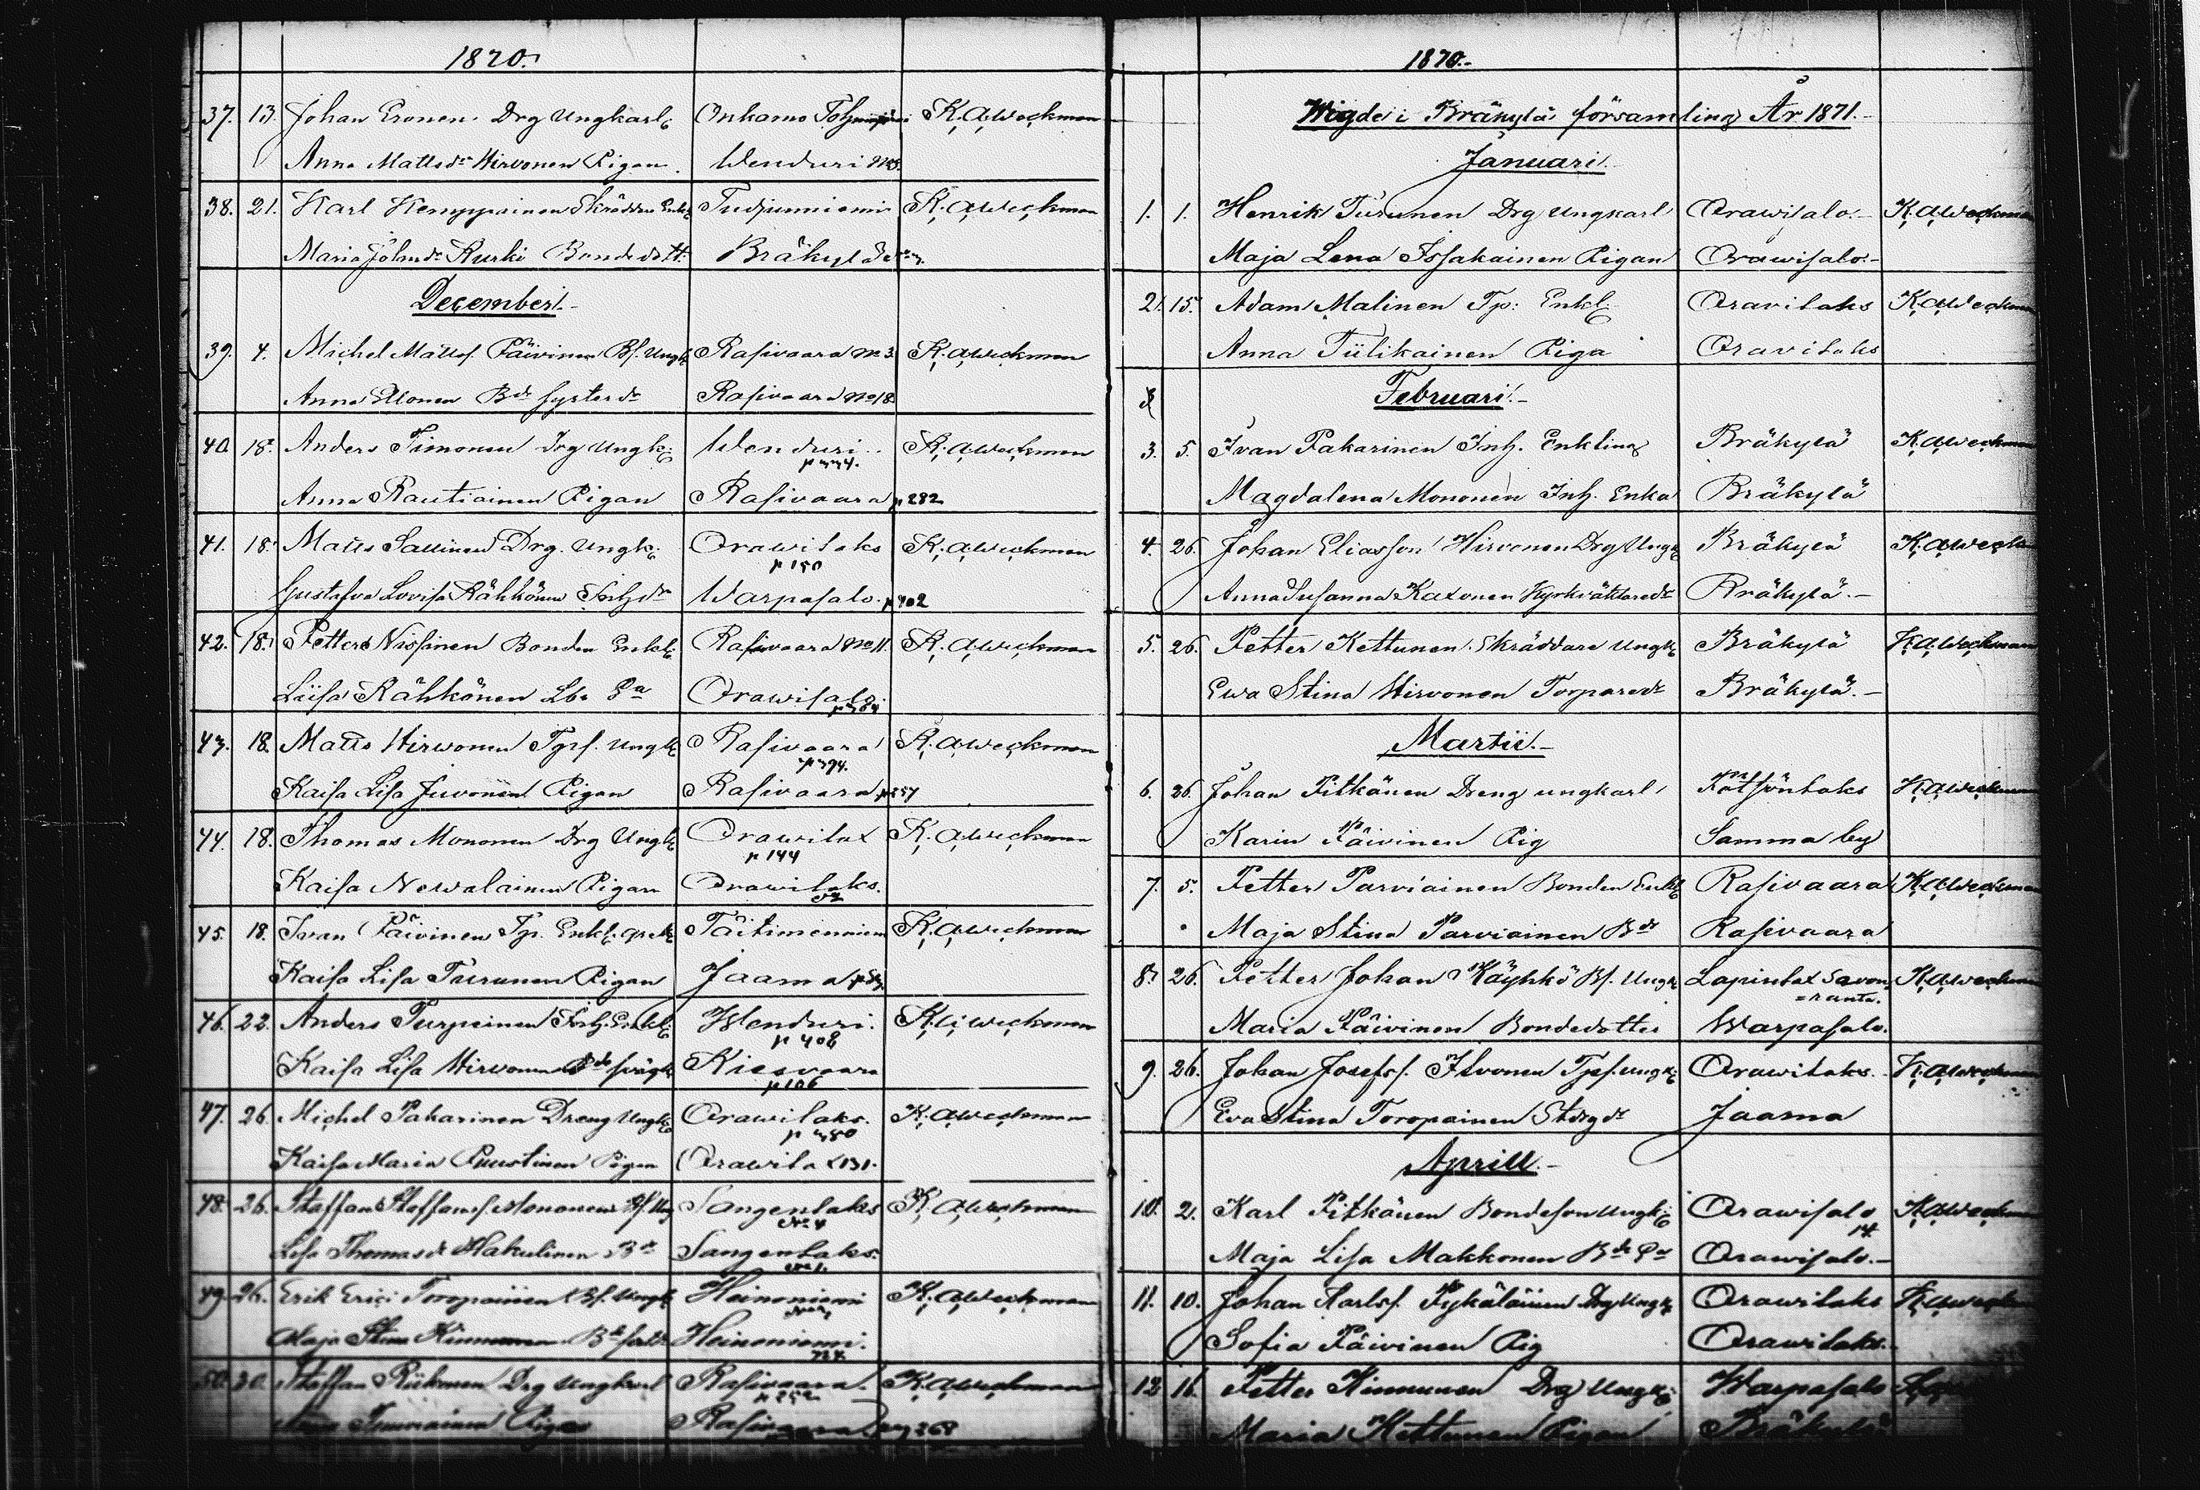 1870.
37. 13. Johan Eronen Drg Ungkarl Onkamo K. A. Weckman
Anna Mattsdr Hirvonen Pigan Wenduri
38. 21. Karl Kemppainen Skräddar Enkl. K. A. Weckman
Maria Johansdr Kurki Bondedott. Bräkylä
December.
39. 4. Michel Mattss. Päivinen Bs. Ungk. Rasivaara No 3. K. A. Weckman
Anna Bde systerdr Rasivaara No 18
40. 18. Anders Timonen Drg Ungk. Wenduri K. A. Weckman
p 334.
Anna Rautiainen Pigan Rasivaara p 282
41. 18. Matts Sallinen Drg. Ungk. Orawilaks K. A. Weckman
p 150
Gustafva Lovisa Rähkönen Inhdr Warpasalo. p 402
42. 18. Petter Nissinen Bonden Enkl. Rasivaara No 11. K. A. Weckman
Liisa Rähkönen Lbo Ea Orawisalo.
p 384
43. 18. Matts Hirvonen Tprs. Ungk. Rasivaara K. A. Weckman
p 394.
Kaisa Lisa Juvonen Pigan Rasivaara p 257
44. 18. Thomas Mononen Drg Ungk. Orawilax K. A. Weckman
p 144
Kaisa Newalainen Pigan Orawilaks.
45. 18. Ivan Päivinen Tp. Enkl. K. A. Weckman
Kaisa Lisa Turunen Pigan Jaama
46. 22. Anders Turpeinen Inh. Enkl. Wenduri. K. A. Weckman
p 408
Kaisa Lisa Hirvonen Bde svägk. Kiesvaara
p 106
47. 26. Michel Pakarinen Dreng Ungk. Orawilaks. K. A. Weckman
p 380
Kaisa Maria Puustinen Pigan Orawilax 131.
48. 26. Staffan Staffanss. Mononen Bs. Ung Sangenlaks K. A. Weckman
No 4
Lisa Thomasdr Hakulinen Bdr Sangenlaks.
No 1.
49. 26. Erik Erici Toropainen Bs. Ungk. Heinoniemi K. A. Weckman
Maja Stina Kinnunen Heinoniemi.
50. 30. Staffan Riikonen Drg Ungkarl Rasivaara. K. A. Weckman
p 252
Pigan Rasivaara 268
1870.
Wigde i Bräkylä församling År 1871.
Januari.
1. 1. Henrik Turunen Drg Ungkarl Orawisalo. K. A. Weckman
Maja Lena Issakainen Pigan Orawisalo.
2. 15. Adam Malinen Tp. Enkl. Oravilaks K. A. Weckman
Anna Tiilikainen Piga Oravilaks
3 Februari.
3. 5. Ivan Pakarinen Inh. Enkling Bräkylä K. A. Weckman
Magdalena Mononen Inh. Enka Bräkylä
4. 26. Johan Eliasson Hirvonen Drg Ungk. Bräkylä K. A. Weckman
Anna Susanna Kaxonen Kyrkväktaredr Bräkylä.
5. 26. Petter Kettunen Skräddare Ungk. Bräkylä K. A. Weckman
Ewa Stina Hirvonen Torparedr Bräkylä.
Martii.
6. 26. Johan Pitkänen Dreng ungkarl K. A. Weckman
Karin Päivinen Pig Samma by
7. 5. Petter Parviainen Bonden Enkl. Rasivaara K. A. Weckman
Maja Stina Parviainen Bdr Rasivaara
8. 26. Petter Johan Käyhkö Bs. Ungk. Lapinlax Savon= K. A. Weckman
=ranta.
Maria Päivinen Bondedotter Warpasalo.
9. 26. Johan Josefs. Ilvonen Tprs. Ungk. Orawilaks. K. A. Weckman
Eva Stina Toropainen Jaama
Aprill.
10. 2. Karl Pitkänen Bondeson Ungk. Orawisalo K. A. Weckman
14.
Maja Lisa Makkonen Bde Ea Orawisalo.
11. 10. Johan Karlss. Pykäläinen Drg Ungk. Orawilaks K. A. Weckman
Sofia Päivinen Pig Orawilaks.
12 16. Petter Kinnunen Drg Ungk. Warpasalo
Maria Kettunen Pigan Bräkylä